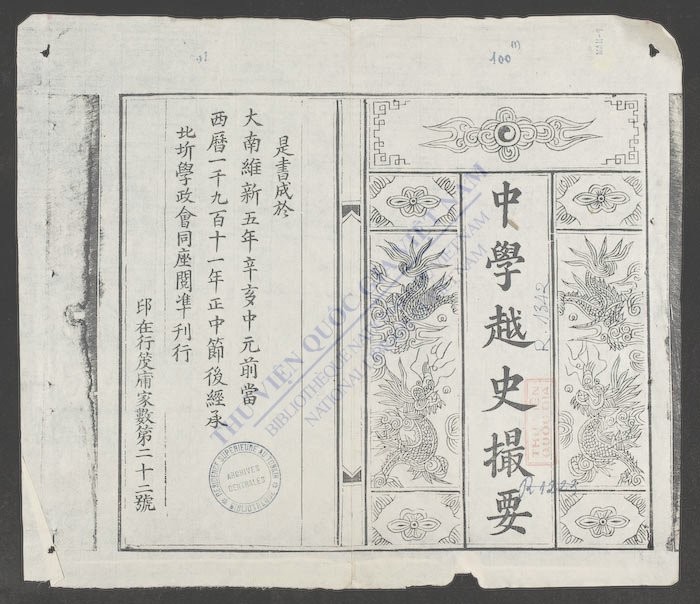 100
中學越史撮要
R.1342
THƯ VIỆN
QUỐC GIA
R.1223
是書成於
大南維新五年辛亥中元前當
西曆一千九百十一年正中節後經承
北圻學政會同座閱準刊行
印在行筏庯家數第二十二號
ARCHIVES
CENTRALES
THƯ VIỆN QUỐC GIA VIỆT NAM
BIBLIOTHÈQUE NATIONALE VIETNAM
NATIONAL VIETNAM